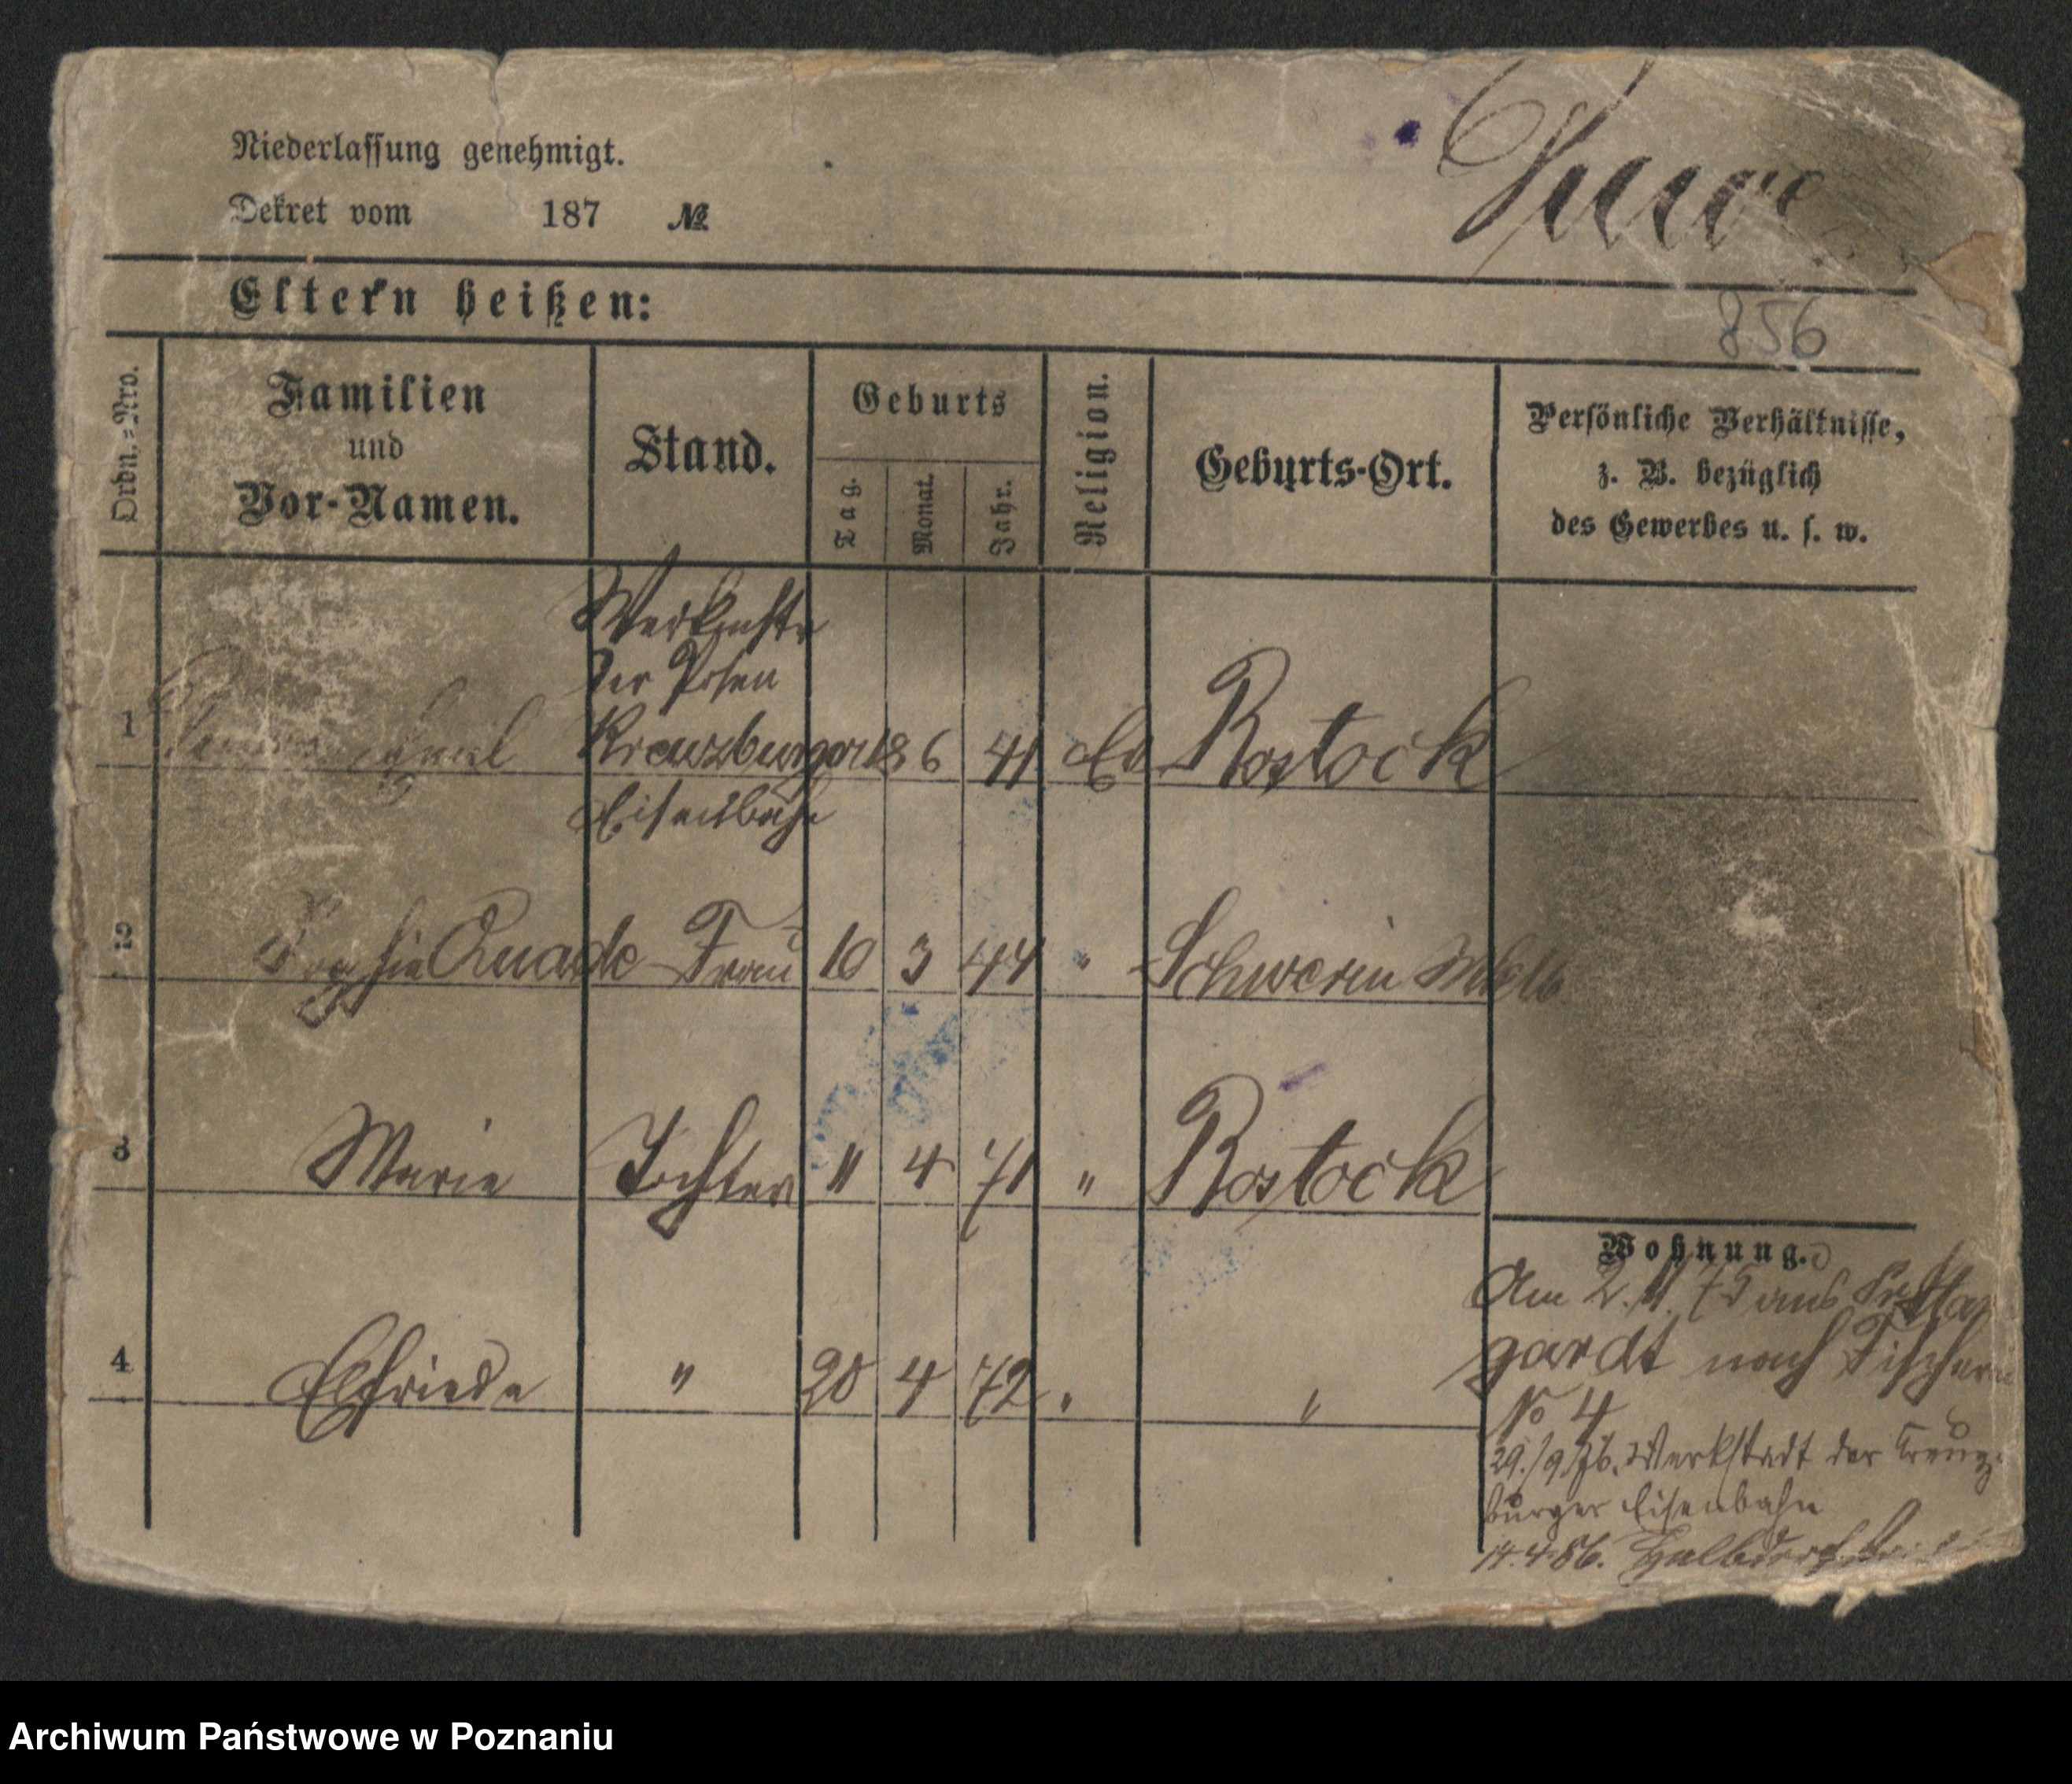 Niederlassung genehmigt.
Dekret vom 187 №
856
Eltern heißen:
Ordn.=Nro.
Familien
und
Vor-Namen.
Stand.
Geburts
Tag.
Monat.
Jahr.
Religion.
Geburts-Ort.
Persönliche Verhältnisse,
z. B. bezüglich
des Gewerbes u. s. w.
der Posen
1 Kreuzburger 18 6 41 Ev Rostock
Eisenbahn
2 Sophie Quade Frau 10 3 44 " Schwerin
3 Marie Tochter 11 4 71 " Rostock
4 Elfriede " 20 4 72 " "
Wohnung.
Am 2. 11. 75 aus
gardt nach
No 4
29./9.76. Werkstadt der Creuz-
burger Eisenbahn
14.4.86. Halbdorf
Archiwum Państwowe w Poznaniu